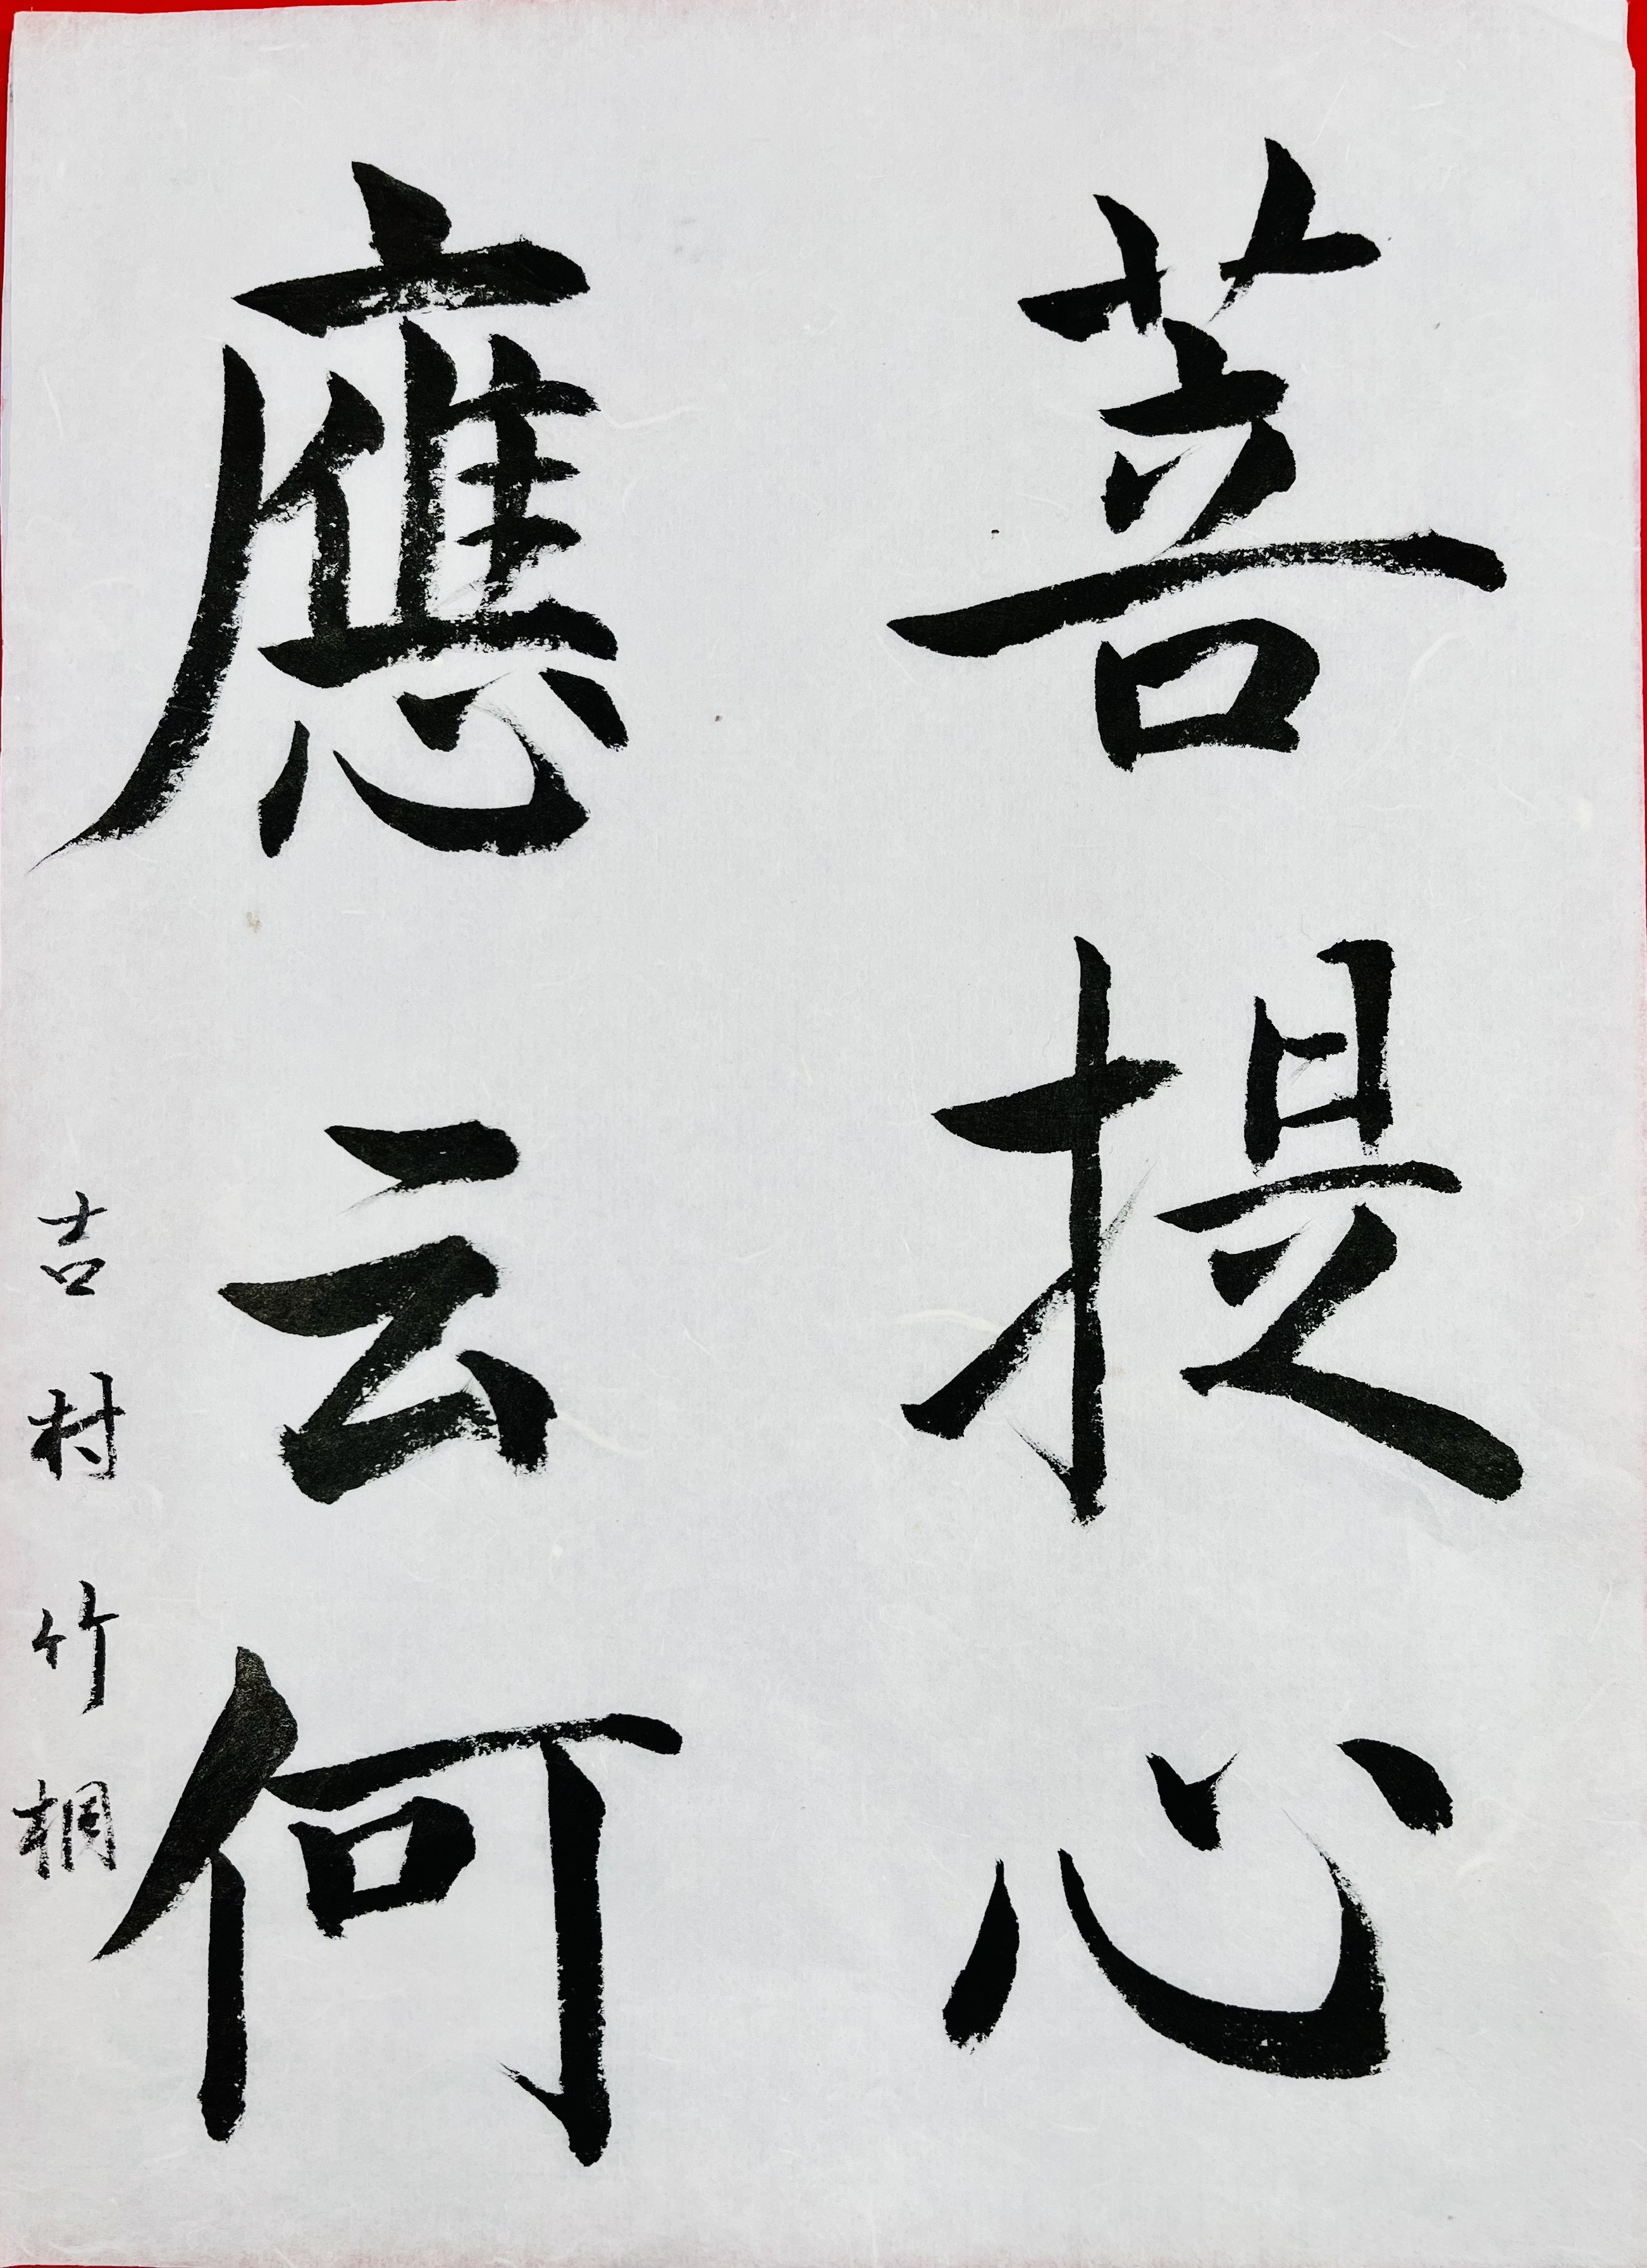 菩提心
應云何
吉村竹桐